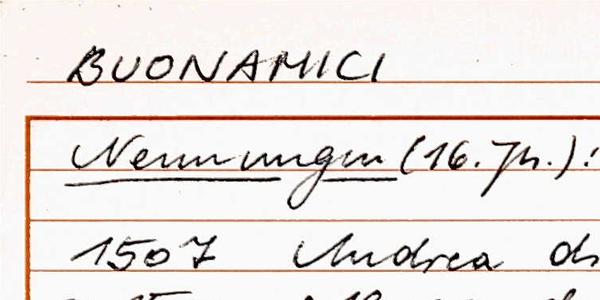 BUONAMICI
Nennungen (16. Jh.):
1507 Andrea di